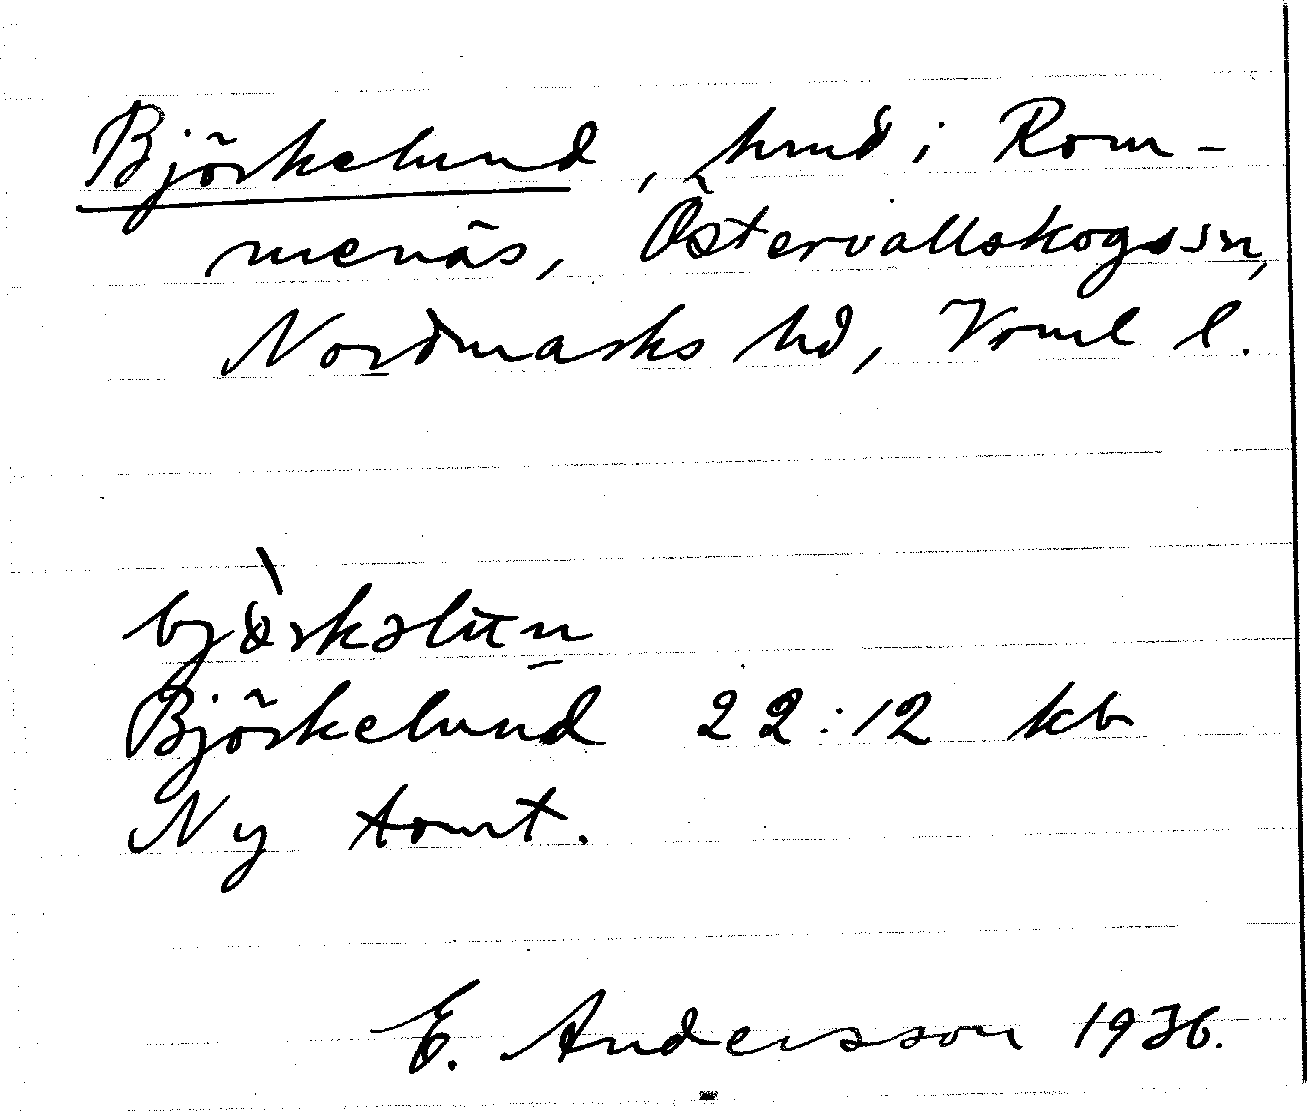 Björkelund, hmd i Rom-
menäs, Östervallskogs sn,
Nordmarks hd, Verml l.
Björkelund 22:12 kb
Ny tomt.
E. Andersson 1936.